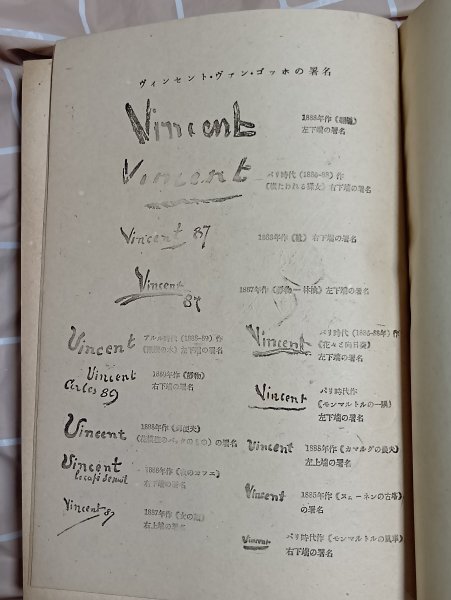 ヴィンセント・ヴァン・ゴッホの署名
Vincent
1888年作
左下端の署名
Vincent
パリ時代(1886-88)作
右下端の署名
Vincent 87
右下端の署名
Vincent
87
1887年作《静物—林檎》左下端の署名
Vincent
アルル時代(1888-89)作
左下端の署名
Vincent
Arles 89
1889年作《静物》
右下端の署名
Vincent
1888年作
の署名
Vincent
le café de nuit
1888年作《夜のカフェ》
右下端の署名
Vincent 87
1887年作《女の顔》
右上端の署名
Vincent
パリ時代(1886-88年)作
《花々と向日葵》
左下端の署名
Vincent
パリ時代作
《モンマルトルの一隅》
左下端の署名
Vincent
1888年作《カマルグの農夫》
左上端の署名
Vincent
1885年作《ヌェーネンの古塔》
の署名
Vincent
パリ時代作《モンマルトルの風車》
右下端の署名